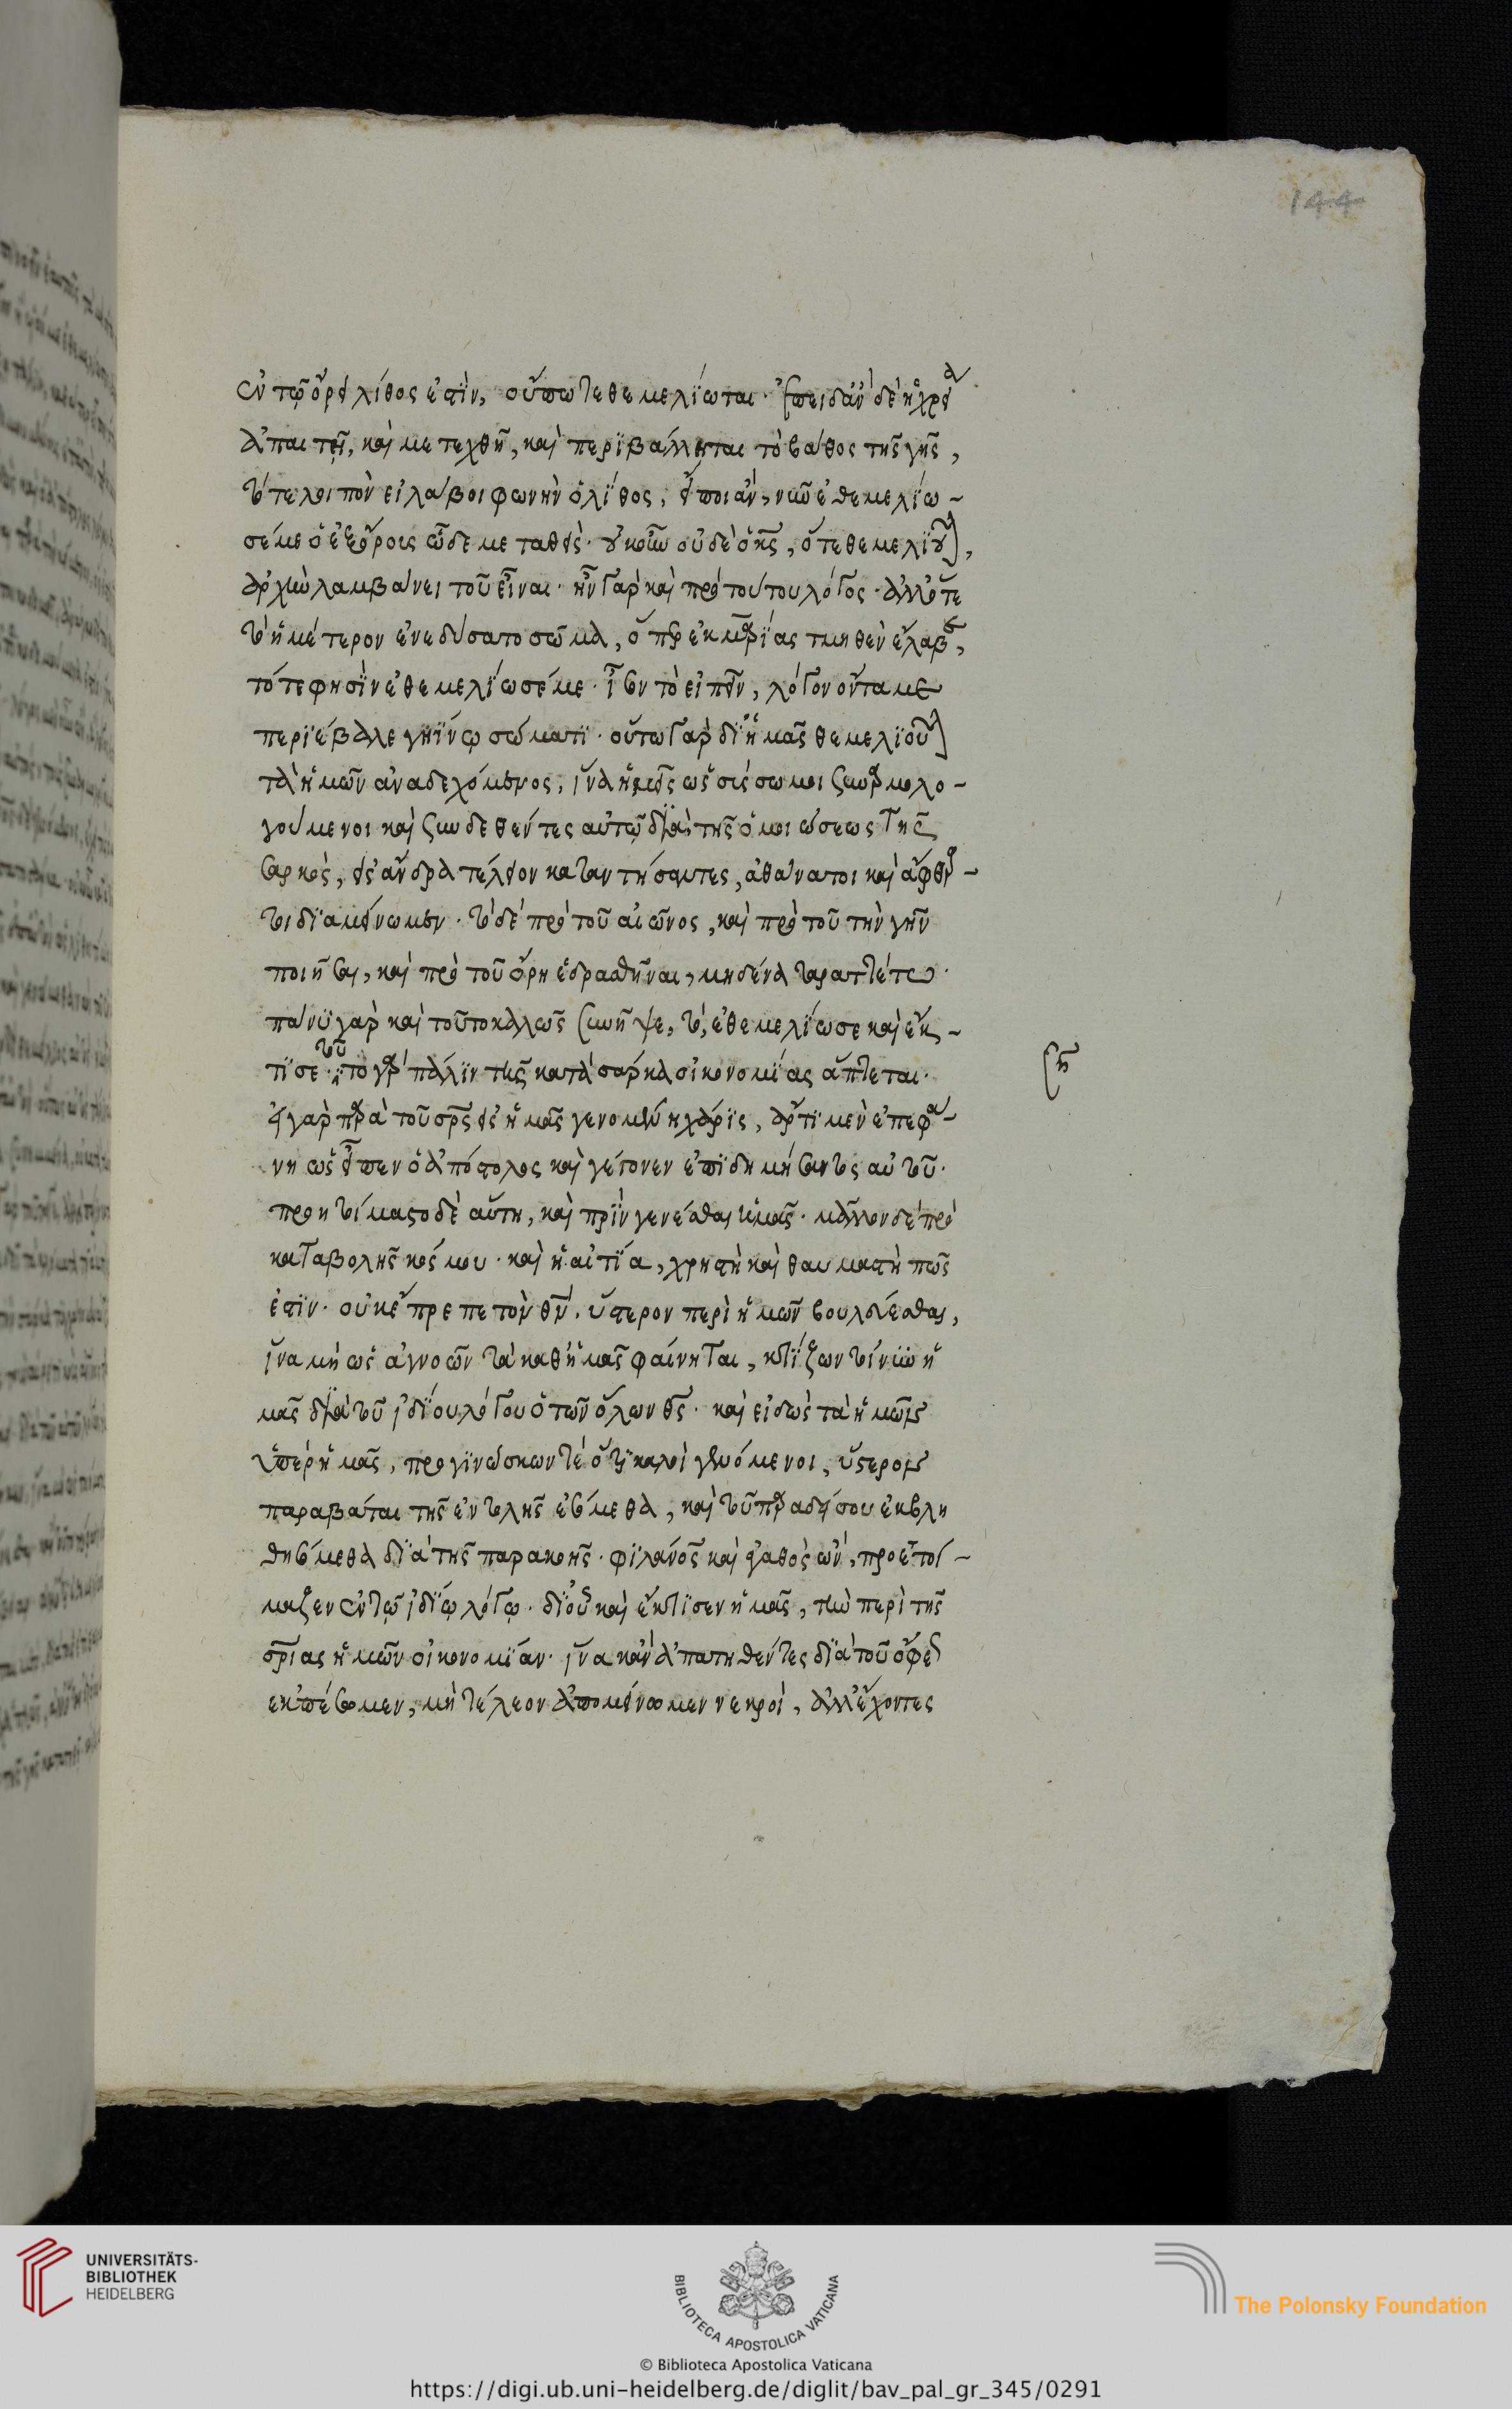 144
ἐν τῷ ὄρει λίθος ἐστὶν, οὔπω τεθεμελίωται. ἐπειδὰν δὲ ἡ χρεία
ἀπαιτῇ, καὶ μετεχθῇ, καὶ περιβάλληται τὸ βάθος τῆς γῆς,
τότε λοιπὸν εἰ λάβοι φωνὴν ὁ λίθος, εἴποι ἂν, νῦν ἐθεμελίω-
σέ με ὁ ἐξ ὄρους ὧδε μεταθείς. οὐκοῦν οὐδὲ ὁ κς, ὅτε θεμελιοῦται,
ἀρχὴν λαμβάνει τοῦ εἶναι. ἦν γὰρ καὶ πρὸ τούτου λόγος. ἀλλ' ὅτε
τὸ ἡμέτερον ἐνεδύσατο σῶμα, ὅπερ ἐκ μαρίας τμηθὲν ἔλαβε,
τότε φησὶν ἐθεμελίωσέ με. ἴσον τὸ εἰπεῖν, λόγον ὄντα με
περιέβαλε γηΐνῳ σώματι. οὕτω γὰρ δι' ἡμᾶς θεμελιοῦται
τὰ ἡμῶν ἀναδεχόμενος, ἵνα ἡμεῖς ὡς σύσσωμοι συναρμολο-
γούμενοι καὶ συνδεθέντες αὐτῷ διὰ τῆς ὁμοιώσεως τῆς
σαρκὸς, εἰς ἄνδρα τέλειον καταντήσαντες, ἀθάνατοι καὶ ἄφθαρ-
τοι διαμένωμεν. τὸ δὲ πρὸ τοῦ αἰῶνος, καὶ πρὸ τοῦ τὴν γῆν
ποιῆσαι, καὶ πρὸ τοῦ ὄρη ἑδρασθῆναι, μηδένα ταραττέτω.
πάνυ γὰρ καὶ τοῦτο καλῶς συνῆψε, τὸ, ἐθεμελίωσε καὶ ἔκ-
τισε. τοῦτο γὰρ πάλιν τῆς κατὰ σάρκα οἰκονομίας ἅπτεται.
ἡ γὰρ παρὰ τοῦ σρς εἰς ἡμᾶς γενομένη χάρις, ἄρτι μὲν ἐπεφά-
νη ὡς εἶπεν ὁ ἀπόστολος καὶ γέγονεν ἐπιδημήσαντος αὐτοῦ.
προητοίμαστο δὲ αὕτη, καὶ πρὶν γενέσθαι ἡμᾶς. μᾶλλον δὲ πρὸ
καταβολῆς κόσμου. καὶ ἡ αἰτία, χρηστὴ καὶ θαυμαστή πως
ἐστίν. οὐκ ἔπρεπε τὸν θν, ὕστερον περὶ ἡμῶν βουλεύεσθαι,
ἵνα μὴ ὡς ἀγνοῶν τὰ καθ' ἡμᾶς φαίνηται, κτίζων τοίνυν ἡ
μᾶς διὰ τοῦ ἰδίου λόγου ὁ τῶν ὅλων θς. καὶ εἰδὼς τὰ ἡμῶν
ὑπὲρ ἡμᾶς, προγινώσκων τε ὅτι καλοὶ γενόμενοι, ὕστερον
παραβάται τῆς ἐντολῆς ἐσόμεθα, καὶ τοῦ παραδείσου ἐκβλη
θησόμεθα διὰ τῆς παρακοῆς. φιλανος καὶ ἀγαθὸς ὢν, προετοι-
μάζει ἐν τῷ ἰδίῳ λόγῳ. δι' οὗ καὶ ἔκτισεν ἡμᾶς, τὴν περὶ τῆς
σριας ἡμῶν οἰκονομίαν. ἵνα κἂν ἀπατηθέντες διὰ τοῦ ὄφεως
ἐκπέσωμεν, μὴ τέλεον ἀπομένωμεν νεκροὶ, ἀλλ' ἔχοντες
UNIVERSITÄTS-
BIBLIOTHEK
HEIDELBERG
BIBLIOTECA APOSTOLICA VATICANA
The Polonsky Foundation
© Biblioteca Apostolica Vaticana
https://digi.ub.uni-heidelberg.de/diglit/bav_pal_gr_345/0291